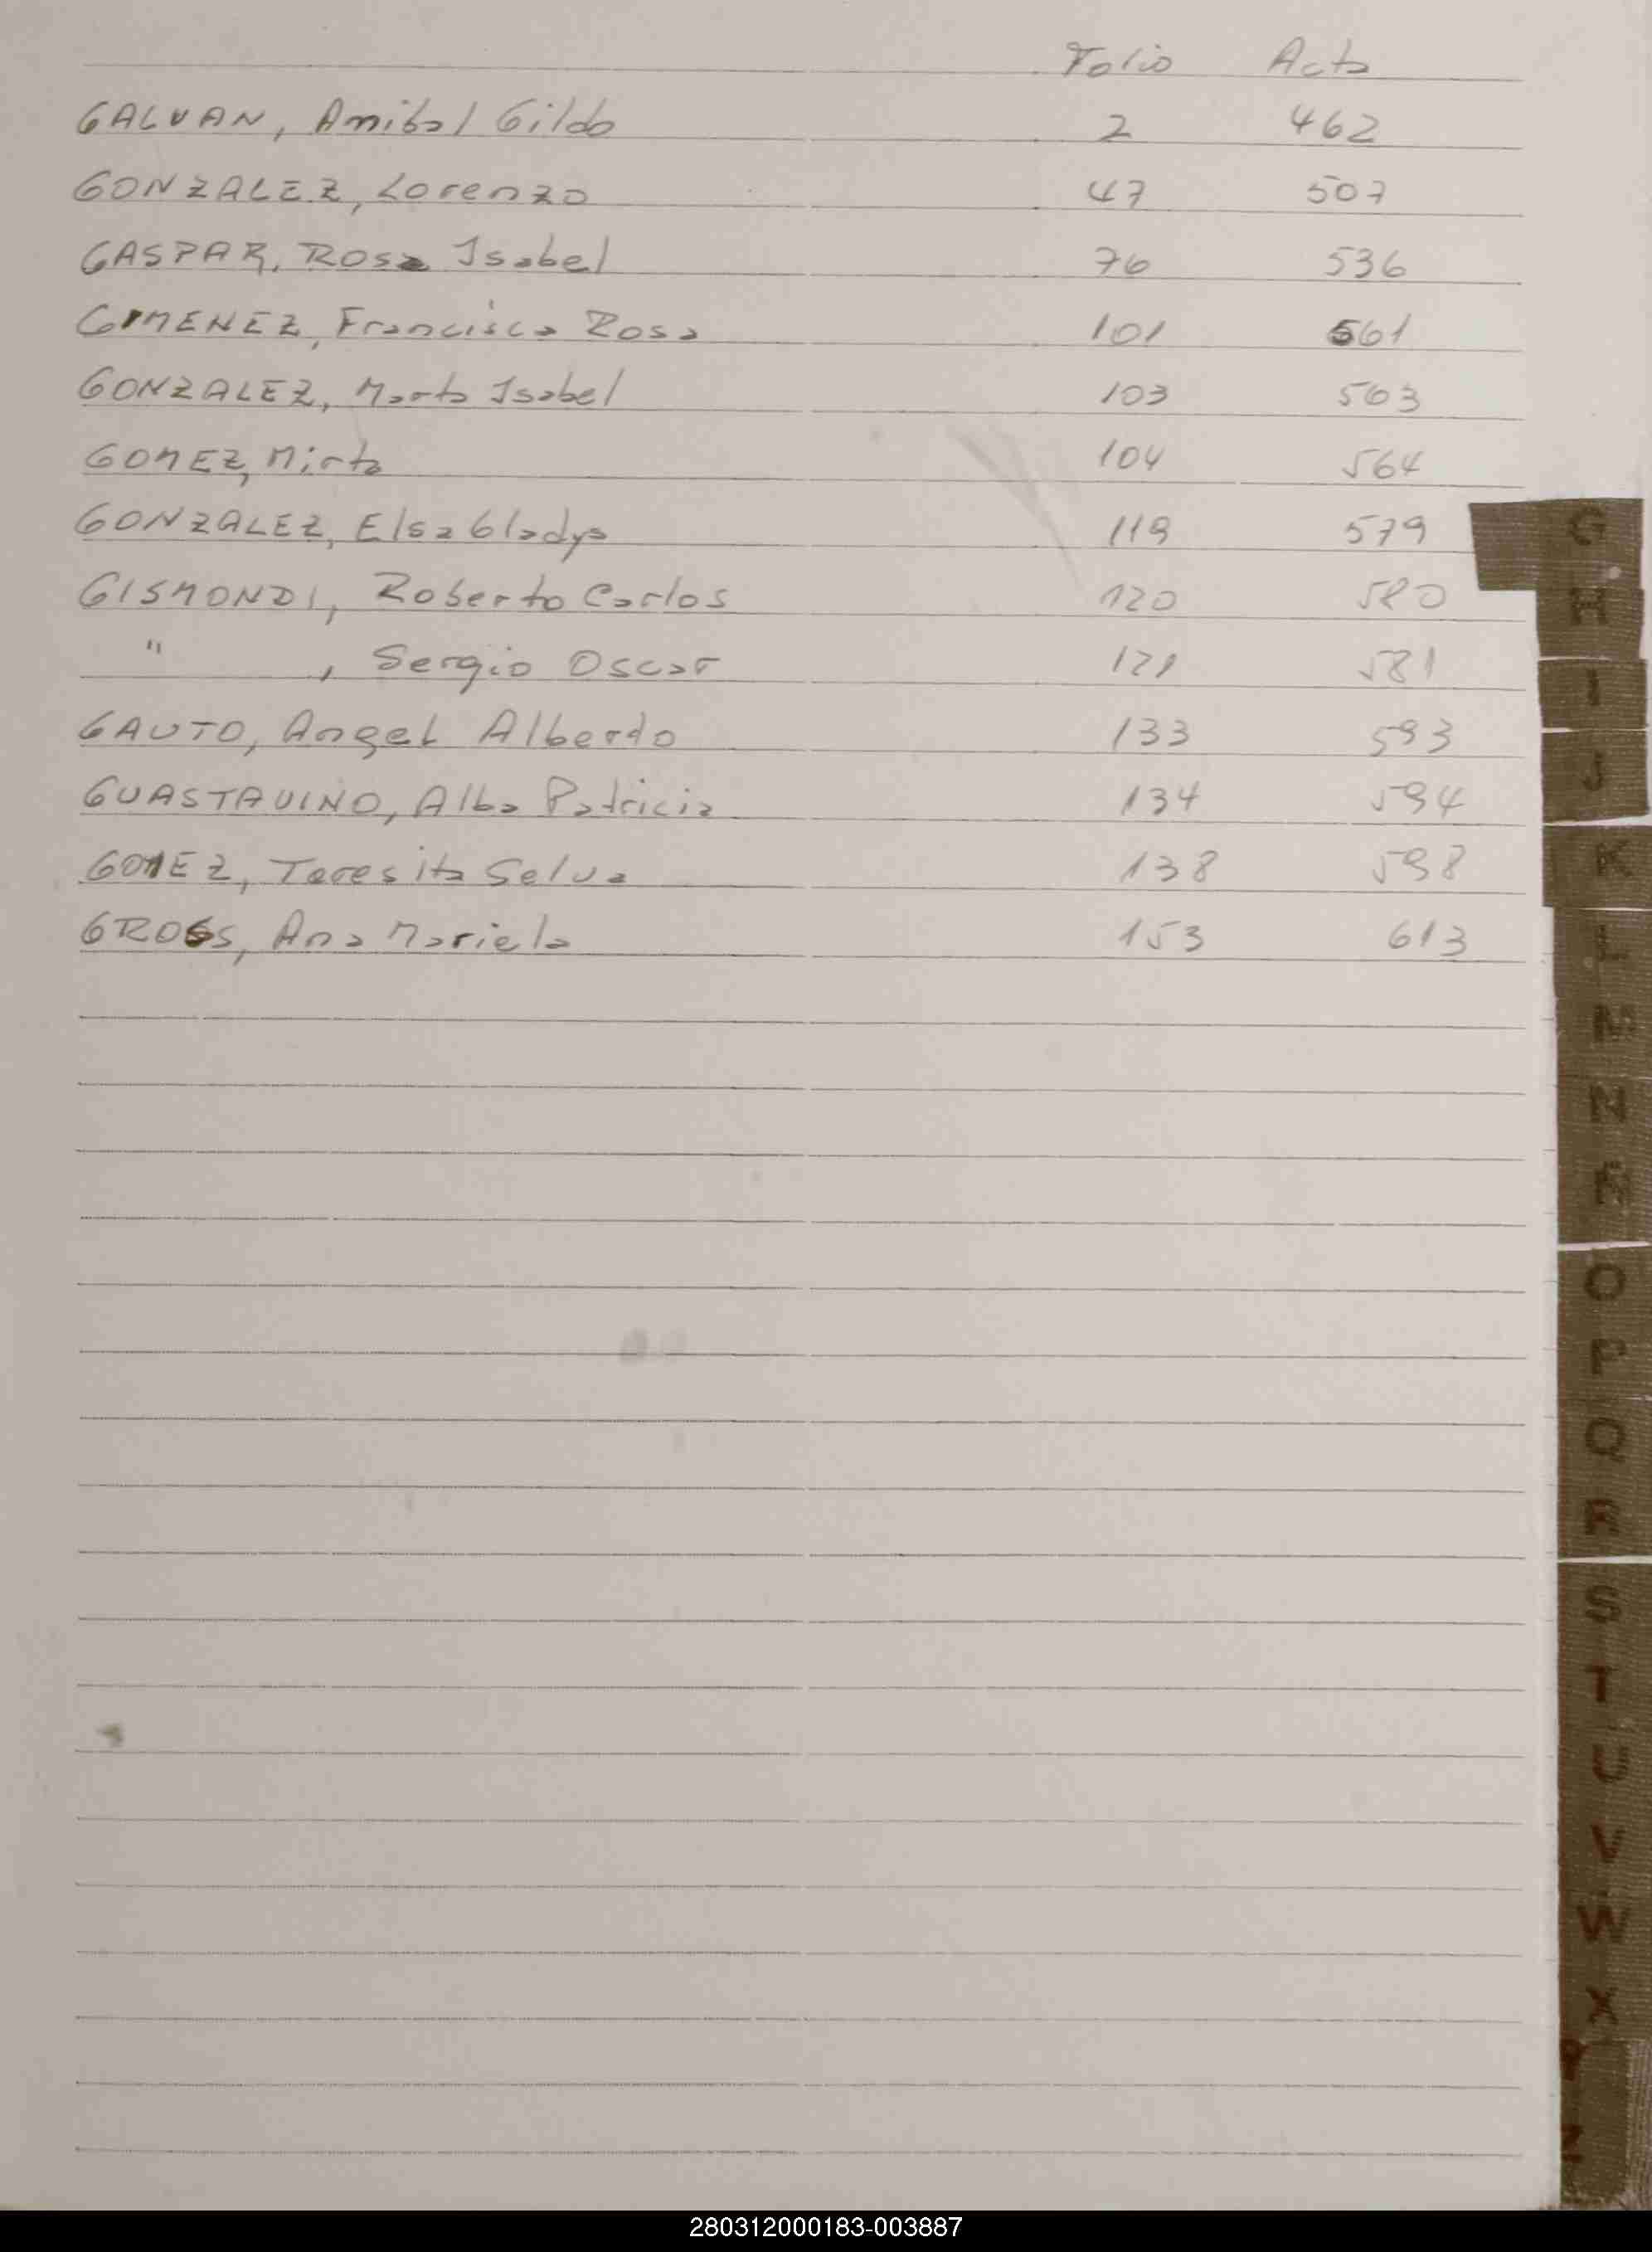 Folio Acta
GALVAN, Anibal Gildo 2 462
GONZALEZ, Lorenzo 47 507
GASPAR, Rosa Isabel 76 536
GIMENEZ, Francisca Rosa 101 561
GONZALEZ, Marta Isabel 103 563
GOMEZ, Mirta 104 564
GONZALEZ, Elsa Gladys 119 579
GISMONDI, Roberto Carlos 120 580
" , Sergio Oscar 121 581
GAUTO, Angel Alberto 133 593
GUASTAVINO, Alba Patricia 134 594
GOMEZ, Teresita Selva 138 598
GROSS, Ana Mariela 153 613
G
H
I
J
K
L
M
N
Ñ
O
P
Q
R
S
T
U
V
W
X
Y
Z
280312000183-003887